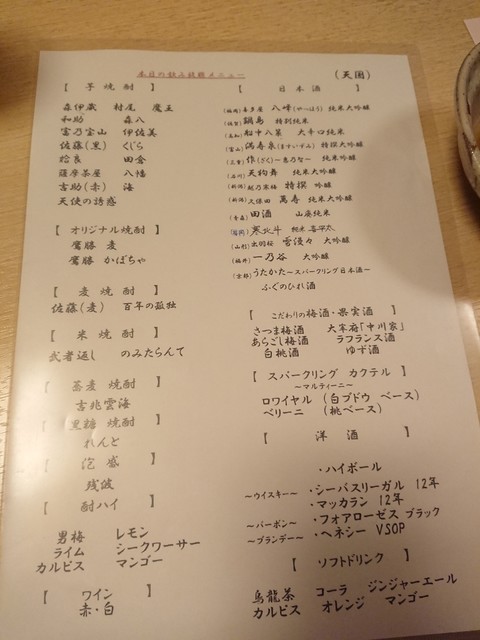 本日の飲み放題メニュー
(天国)
【 芋焼酎 】
森伊蔵 村尾 魔王
和助 森八
富乃宝山 伊佐美
佐藤(黒) くじら
蛤良 田倉
薩摩茶屋 八幡
吉助(赤) 海
天使の誘惑
【 オリジナル焼酎 】
鷹勝 麦
鷹勝 かぼちゃ
【 麦焼酎 】
佐藤(麦) 百年の孤独
【 米焼酎 】
武者返し のみたらんて
【 蕎麦焼酎 】
吉兆雲海
【 黒糖焼酎 】
れんと
【 泡盛 】
残波
【 酎ハイ 】
男梅 レモン
ライム シークワーサー
カルピス マンゴー
【 ワイン 】
赤・白
【 日本酒 】
(福岡) 喜多屋 八峰(やっほう) 純米大吟醸
(佐賀) 鍋島 特別純米
(高知) 船中八策 大辛口純米
(富山) 満寿泉(ますいずみ) 特撰大吟醸
(三重) 作(ざく)~恵乃智~ 純米吟醸
(石川) 天狗舞 純米大吟醸
(新潟) 越乃寒梅 特撰 吟醸
(新潟) 久保田 萬寿 純米大吟醸
(青森) 田酒 山廃純米
(福岡) 寒北斗 純米
(山形) 出羽桜 雪漫々 大吟醸
(福井) 一乃谷 大吟醸
(京都) うたかた~スパークリング日本酒~
ふぐのひれ酒
【 こだわりの梅酒・果実酒 】
さつま梅酒 大宰府「中川家」
あらごし梅酒 ラフランス酒
白桃酒 ゆず酒
【 スパークリング カクテル 】
~マルティーニ~
ロワイヤル (白ブドウ ベース)
ベリーニ (桃ベース)
【 洋酒 】
・ハイボール
~ウイスキー~ ・シーバスリーガル 12年
・マッカラン 12年
~バーボン~ ・フォアローゼス ブラック
~ブランデー~ ・ヘネシー VSOP
【 ソフトドリンク 】
烏龍茶 コーラ ジンジャーエール
カルピス オレンジ マンゴー